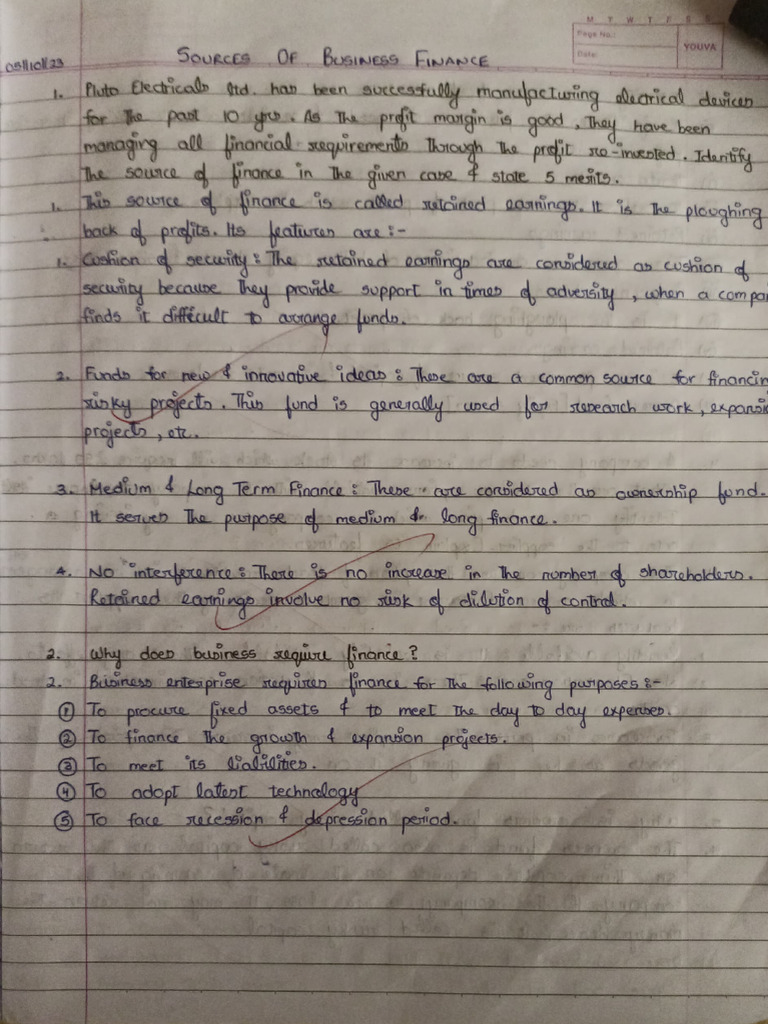 M T W T F S S
Page No.:
Date:
YOUVA
05/10/23
SOURCES OF BUSINESS FINANCE
1. Pluto Electricals ltd. has been successfully manufacturing electrical devices
for the past 10 yrs. As the profit margin is good, they have been
managing all financial requirements through the profit re-invested. Identify
the source of finance in the given case & state 5 merits.
1. This source of finance is called retained earnings. It is the ploughing
back of profits. Its features are :-
1. Cushion of security : The retained earnings are considered as cushion of
security because they provide support in times of adversity, when a compa
finds it difficult to arrange funds.
2. Funds for new & innovative ideas : These are a common source for financin
risky projects. This fund is generally used for research work, expansi
projects, etc.
3. Medium & Long Term Finance : These are considered as ownership fund.
It serves the purpose of medium & long finance.
4. No interference : There is no increase in the number of shareholders.
Retained earnings involve no risk of dilution of control.
2. Why does business require finance ?
2. Business enterprise requires finance for the following purposes :-
1 To procure fixed assets & to meet the day to day expenses.
2 To finance the growth & expansion projects.
3 To meet its liabilities.
4 To adopt latest technology
5 To face recession & depression period.